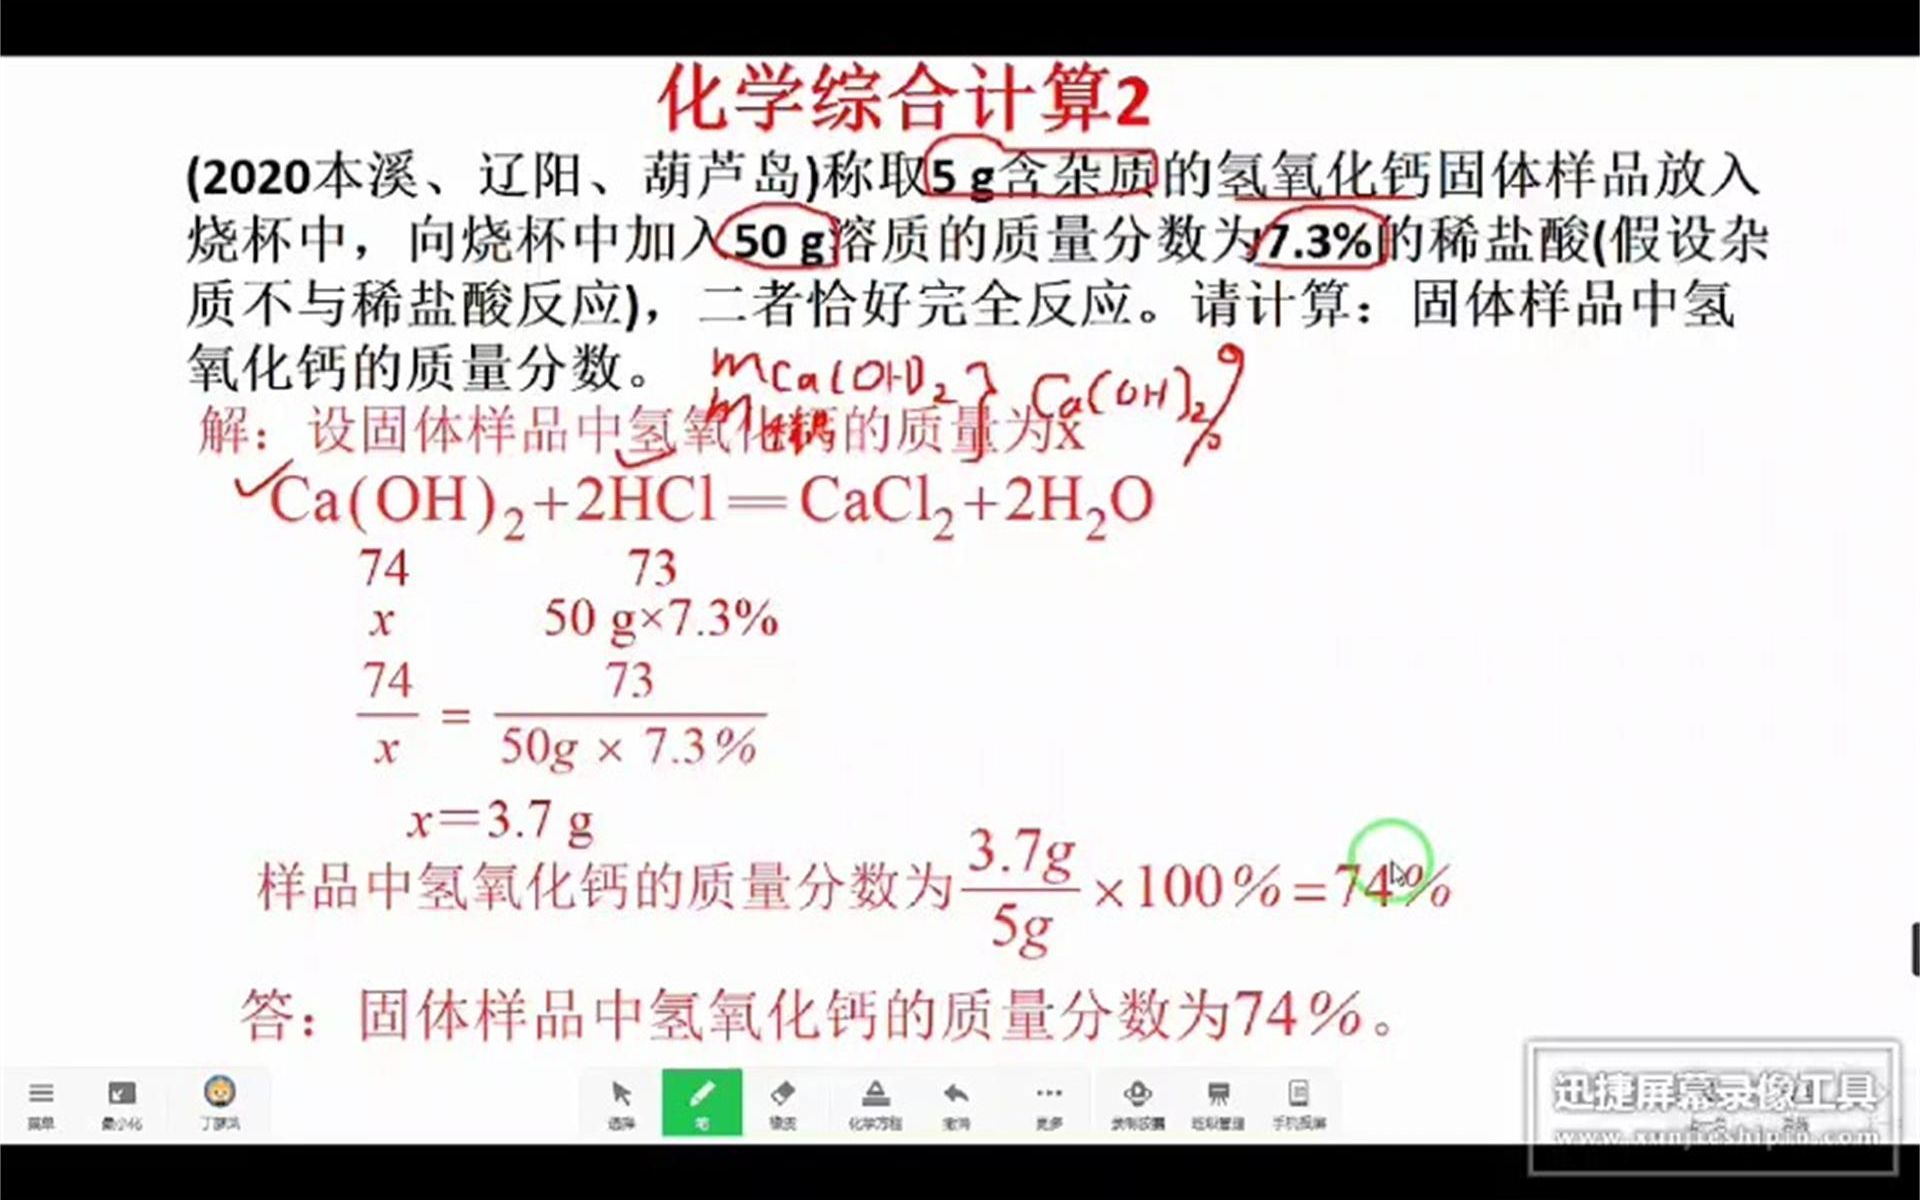 化学综合计算2
(2020本溪、辽阳、葫芦岛)称取5 g含杂质的氢氧化钙固体样品放入
烧杯中，向烧杯中加入50 g溶质的质量分数为7.3%的稀盐酸(假设杂
质不与稀盐酸反应)，二者恰好完全反应。请计算：固体样品中氢
氧化钙的质量分数。
mCa(OH)2 } Ca(OH)2%
解：设固体样品中氢氧化钙的质量为x
Ca(OH)₂+2HCl═CaCl₂+2H₂O
74 73
x 50 g×7.3%
74 73
=
x 50g × 7.3%
x=3.7 g
样品中氢氧化钙的质量分数为3.7g/5g×100%=74%
答：固体样品中氢氧化钙的质量分数为74%。
菜单 最小化 选择 笔 橡皮 化学方程 撤消 更多 录制胶囊 班级管理 手机投屏
迅捷屏幕录像工具
www.xunjieshipin.com